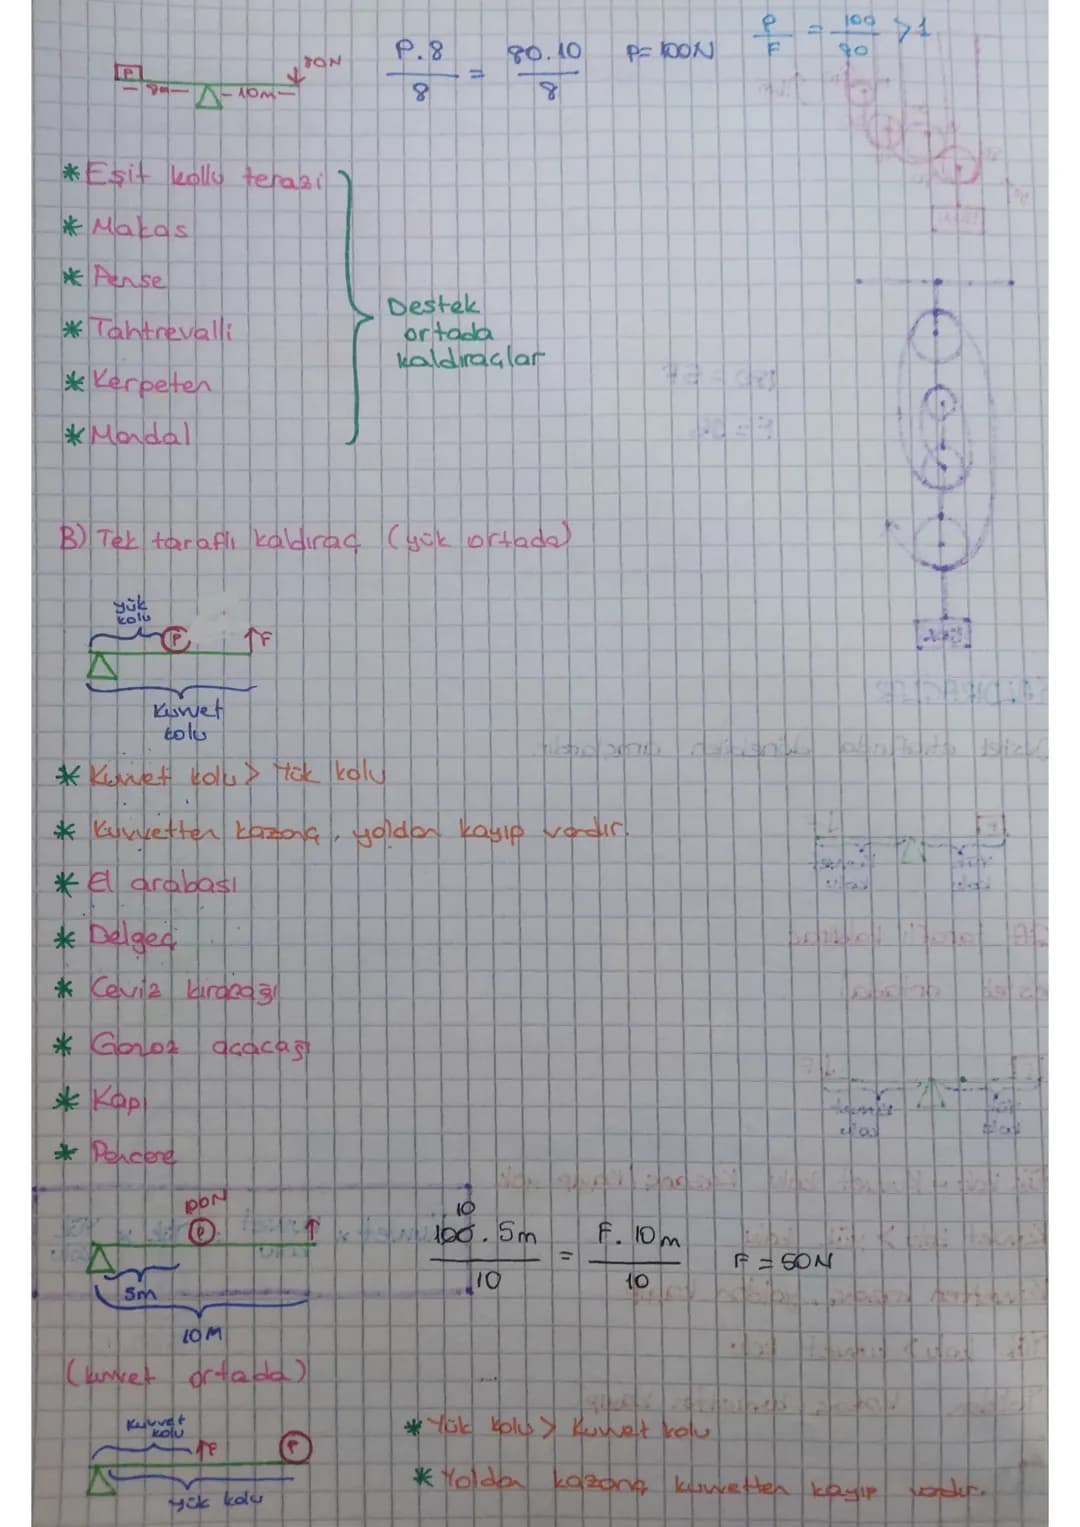 P
80N
8m
10m
P.8 / 8 = 80.10 / 8
P=100N
P/F = 100/80 >1
* Eşit kollu terazi
* Makas
* Pense
* Tahtrevalli
* Kerpeten
* Mandal
Destek
ortada
kaldıraçlar
B) Tek taraflı kaldıraç (yük ortada)
yük
kolu
P
F
Kuvvet
kolu
* Kuvvet kolu > Yük kolu
* Kuvvetten kazanç, yoldan kayıp vardır.
* El arabası
* Delgeç
* Ceviz kıracağı
* Gazoz açacağı
* Kapı
* Pencere
100N
P
5m
10M
10
100.5m / 10 = F.10m / 10
F=50N
(kuvvet ortada)
Kuvvet
kolu
F
P
yük kolu
* Yük kolu > Kuvvet kolu
* Yoldan kazanç kuvvetten kayıp vardır.